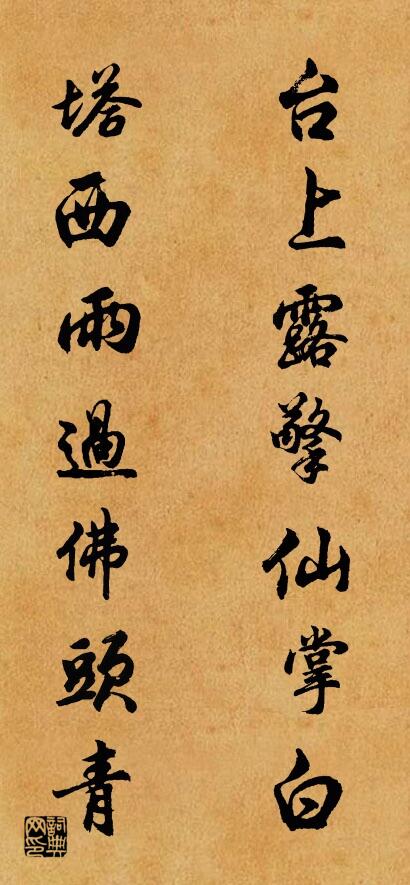 台上露擎仙掌白
塔西雨過佛頭青
詞典
网印